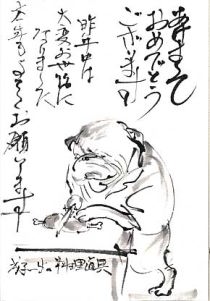 おめでとう
ございます
昨年中は
大変お世話に
なりました
本年もよろしくお願いします
の料理道具